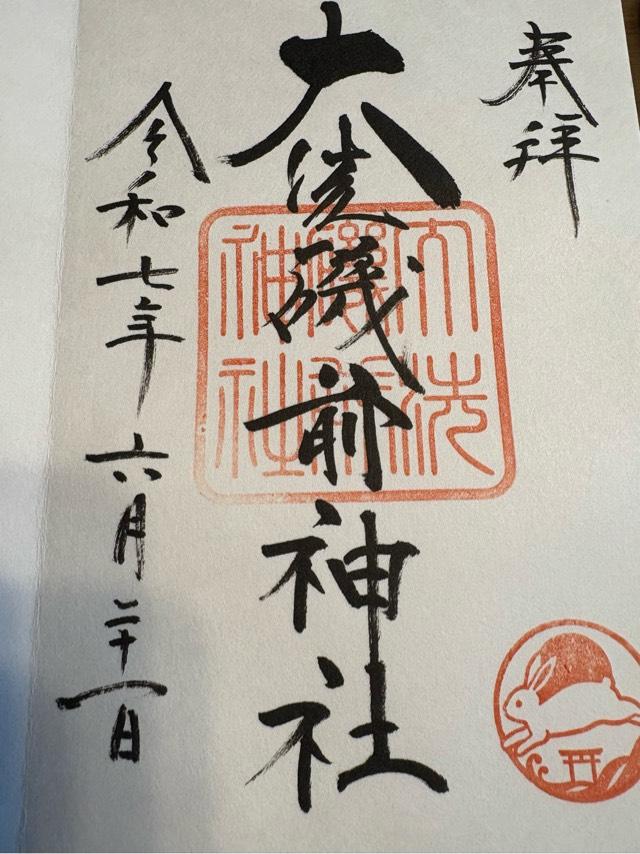 奉拝
大洗磯前神社
令和七年六月二十一日
大洗
磯前
神社